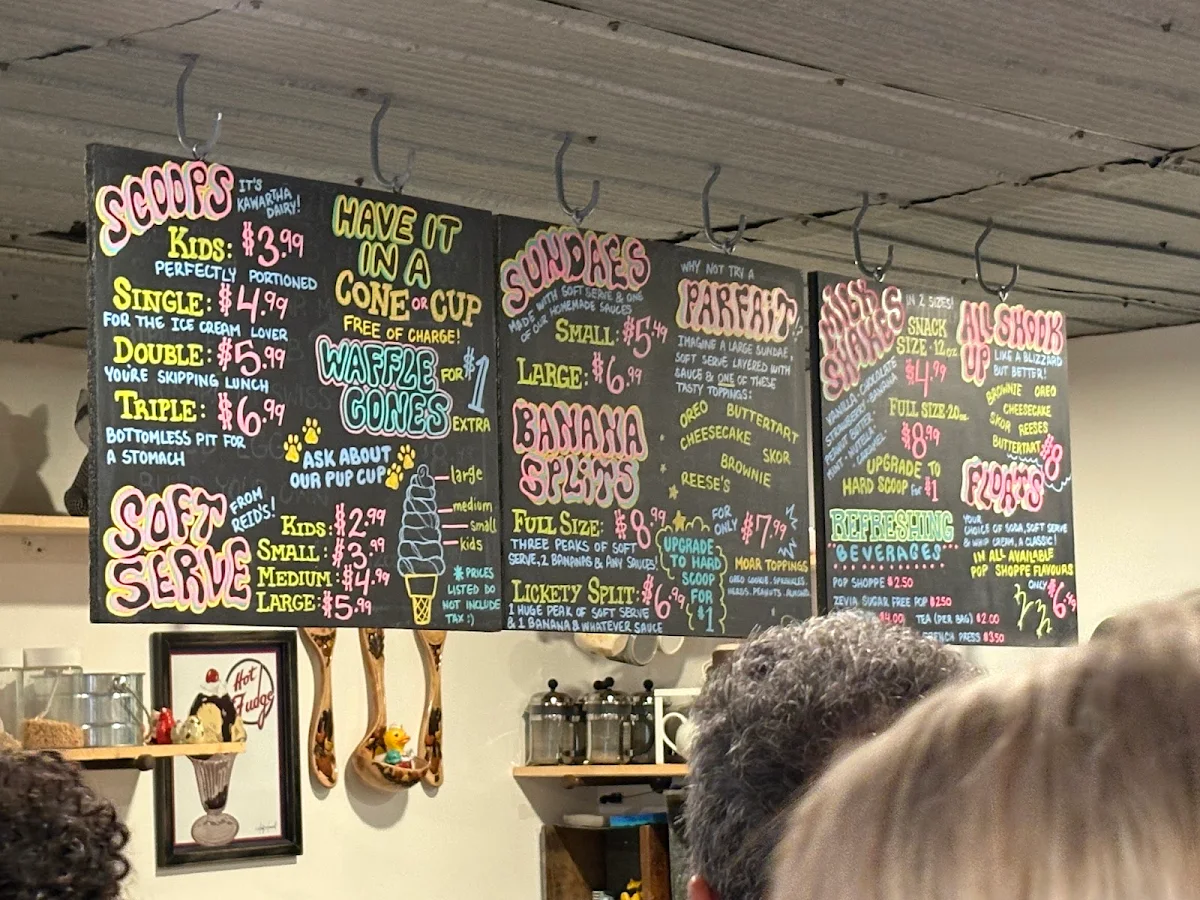 SCOOPS
IT'S
KAWARTHA
DAIRY!
KIDS: $3.99
PERFECTLY PORTIONED
SINGLE: $4.99
FOR THE ICE CREAM LOVER
DOUBLE: $5.99
YOU'RE SKIPPING LUNCH
TRIPLE: $6.99
BOTTOMLESS PIT FOR
A STOMACH
SOFT
SERVE
FROM
REID'S!
KIDS: $2.99
SMALL: $3.99
MEDIUM: $4.99
LARGE: $5.99
HAVE IT
IN A
CONE OR CUP
FREE OF CHARGE!
WAFFLE
CONES
FOR $1
EXTRA
ASK ABOUT
OUR PUP CUP
large
medium
small
kids
*PRICES
LISTED DO
NOT INCLUDE
TAX :)
SUNDAES
MADE WITH SOFT SERVE & ONE
OF OUR HOMEMADE SAUCES
SMALL: $5.49
LARGE: $6.99
BANANA
SPLITS
FULL SIZE: $8.99
THREE PEAKS OF SOFT
SERVE, 2 BANANAS & ANY SAUCES!
LICKETY SPLIT: $6.99
1 HUGE PEAK OF SOFT SERVE
& 1 BANANA & WHATEVER SAUCE
UPGRADE
TO HARD
SCOOP
FOR
$1
WHY NOT TRY A
PARFAIT?
IMAGINE A LARGE SUNDAE,
SOFT SERVE LAYERED WITH
SAUCE & ONE OF THESE
TASTY TOPPINGS:
OREO BUTTERTART
CHEESECAKE SKOR
BROWNIE
REESE'S
FOR
ONLY $7.99
MOAR TOPPINGS
OREO COOKIE, SPRINKLES,
NERDS, PEANUTS, ALMOND
MILK
SHAKES
IN 2 SIZES!
SNACK
SIZE - 12oz
$4.99
FULL SIZE - 20oz
$8.99
VANILLA - CHOCOLATE
STRAWBERRY - BANANA
PEANUT BUTTER -
MINT - NUTELLA -
CARAMEL
UPGRADE TO
HARD SCOOP FOR $1
REFRESHING
BEVERAGES
POP SHOPPE $2.50
ZEVIA SUGAR FREE POP $2.50
$4.00 TEA (PER BAG) $2.00
FRENCH PRESS $3.50
ALL SHOOK
UP
LIKE A BLIZZARD
BUT BETTER!
BROWNIE OREO
CHEESECAKE
SKOR REESES
BUTTERTART
$8
FLOATS
YOUR
CHOICE OF SODA, SOFT SERVE
& WHIP CREAM, A CLASSIC!
IN ALL AVAILABLE
POP SHOPPE FLAVOURS
ONLY
$6.49
Hot
Fudge